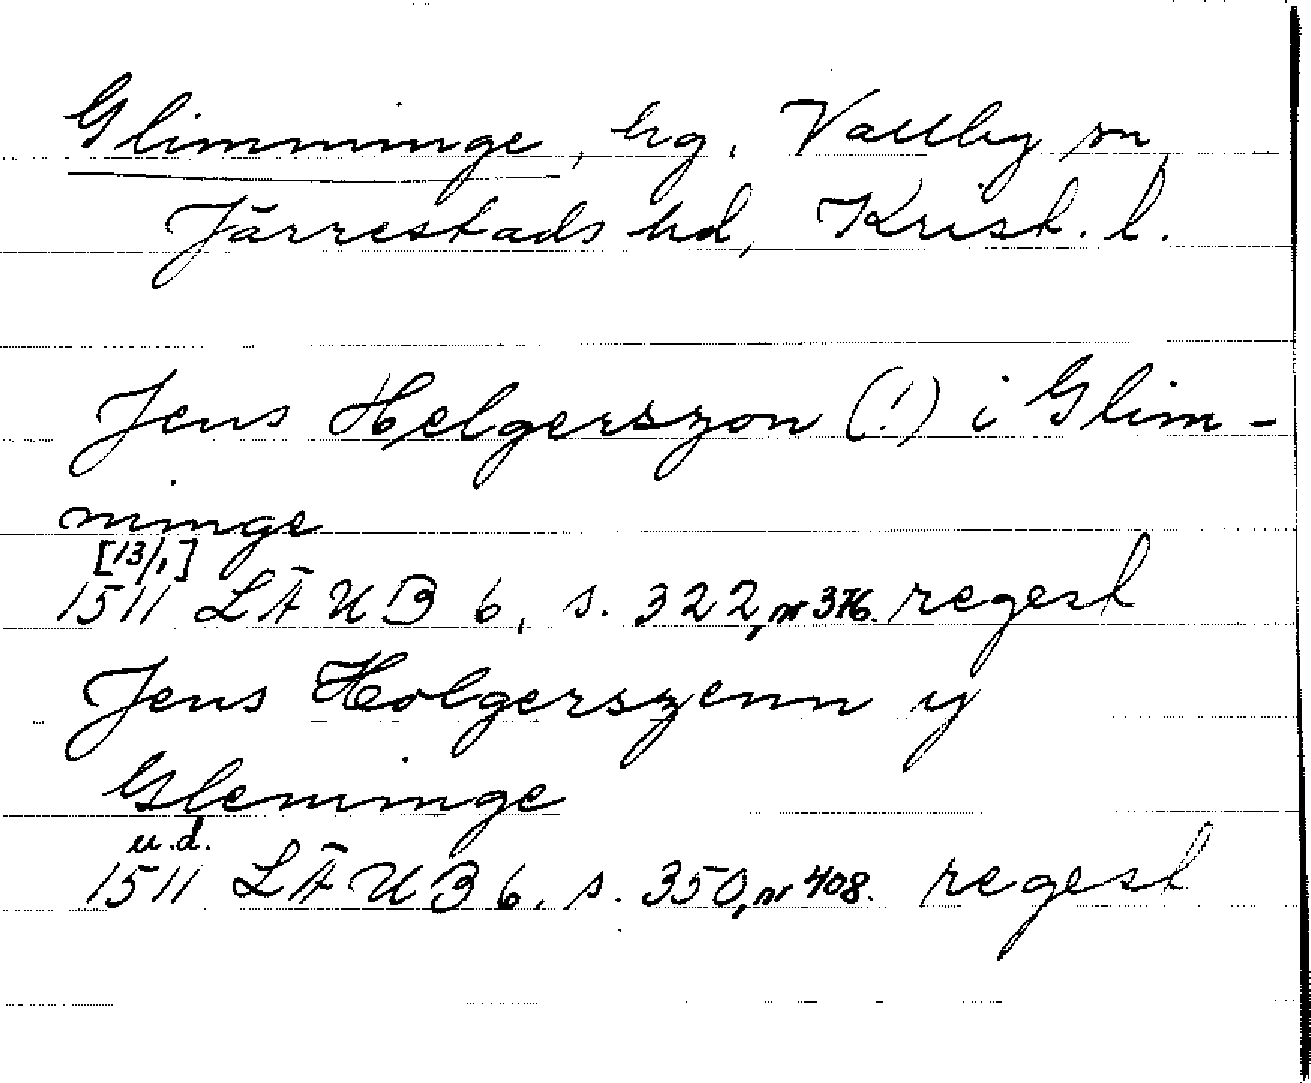 Glimminge, hg. Vallby sn
Järrestads hd, Krist. l.
Jens Helgerszon (!) i Glim-
minge
[13/1]
1511 LÄUB 6, s. 322, nr 376. regest
Jens Holgerszenn y
Gleminge
u.d.
1511 LÄUB 6. s. 350, nr 408. regest